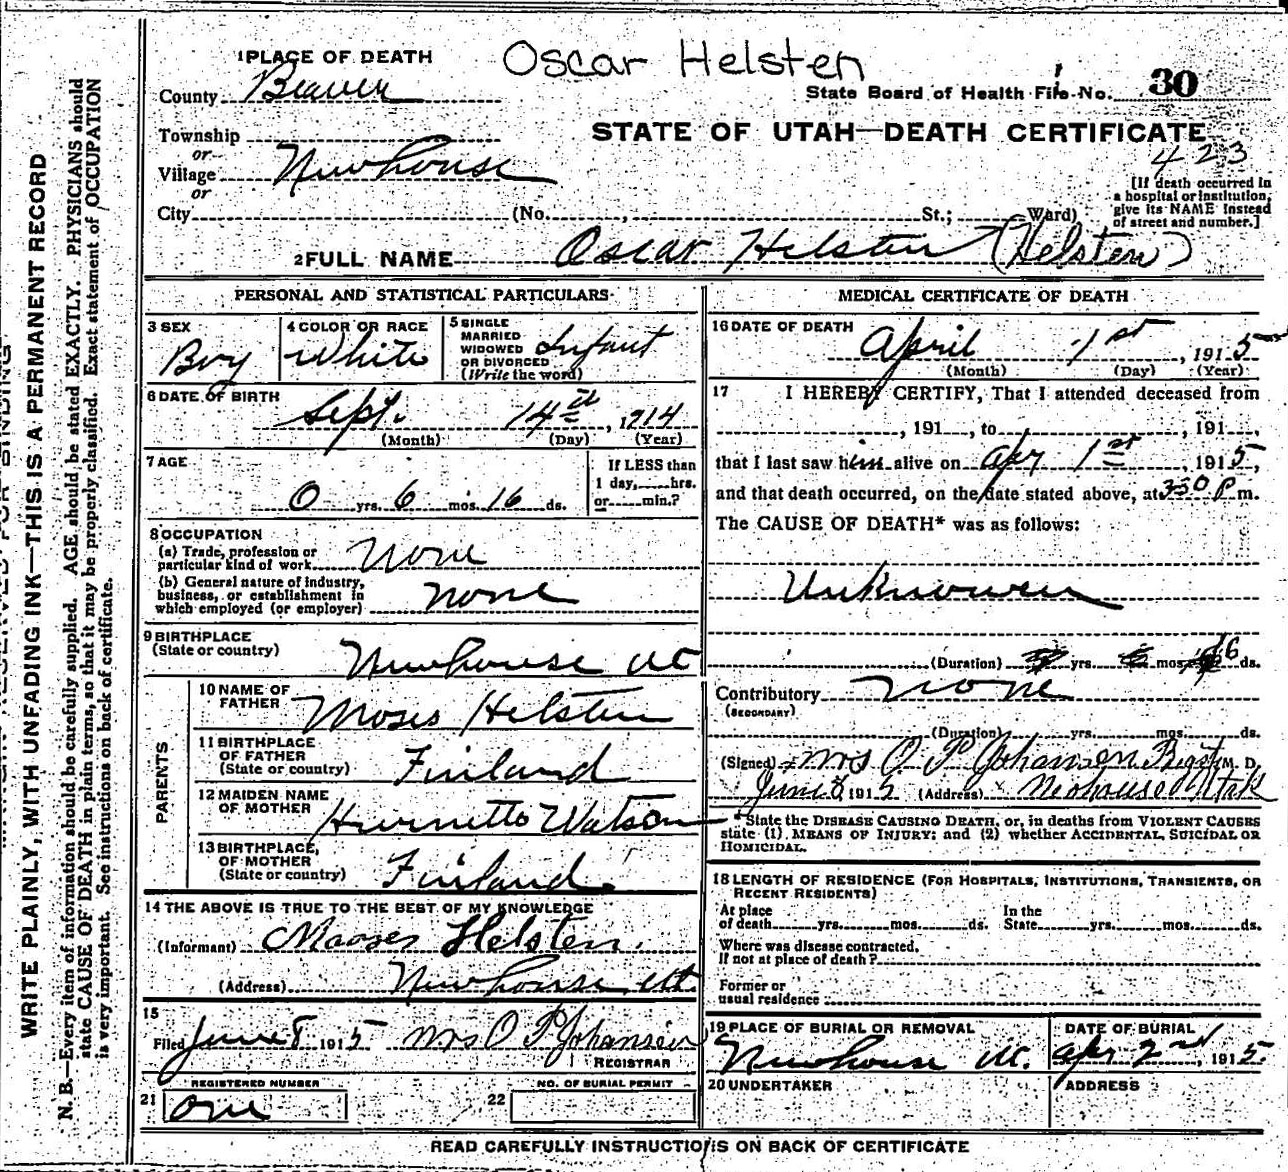 Oscar Helsten
1 PLACE OF DEATH
County Beaver
State Board of Health File No. 30
Township
or
Village Newhouse
or
City (No. , St.; Ward)
STATE OF UTAH—DEATH CERTIFICATE
423
[If death occurred in
a hospital or institution,
give its NAME instead
of street and number.]
2 FULL NAME Oscar Helsten (Helsten)
PERSONAL AND STATISTICAL PARTICULARS
3 SEX
Boy
4 COLOR OR RACE
White
5 SINGLE
MARRIED
WIDOWED
OR DIVORCED
(Write the word)
Infant
6 DATE OF BIRTH
Sept. 14th, 1914
(Month) (Day) (Year)
7 AGE
0 yrs. 6 mos. 16 ds.
If LESS than
1 day, hrs.
or min.?
8 OCCUPATION
(a) Trade, profession or
particular kind of work none
(b) General nature of industry,
business, or establishment in
which employed (or employer) none
9 BIRTHPLACE
(State or country)
Newhouse Ut
PARENTS
10 NAME OF
FATHER
Moses Helsten
11 BIRTHPLACE
OF FATHER
(State or country)
Finland
12 MAIDEN NAME
OF MOTHER
Watson
13 BIRTHPLACE,
OF MOTHER
(State or country)
Finland.
14 THE ABOVE IS TRUE TO THE BEST OF MY KNOWLEDGE
(Informant) Mooses Helsten.
(Address) Newhouse Ut.
15
Filed June 8 1915 Mrs O P Johansen
REGISTRAR
REGISTERED NUMBER
21 one
NO. OF BURIAL PERMIT
22
MEDICAL CERTIFICATE OF DEATH
16 DATE OF DEATH
April 1st, 1915
(Month) (Day) (Year)
17 I HEREBY CERTIFY, That I attended deceased from
, 191 , to , 191 ,
that I last saw him alive on Apr 1st, 1915,
and that death occurred, on the date stated above, at 3 30 P m.
The CAUSE OF DEATH* was as follows:
Unknowen
(Duration) yrs. mos. 16 ds.
Contributory none
(SECONDARY)
(Duration) yrs. mos. ds.
(Signed) Mrs O P Johansen M. D.
June 8 1915 (Address) Newhouse Utah
*State the DISEASE CAUSING DEATH, or, in deaths from VIOLENT CAUSES
state (1) MEANS OF INJURY; and (2) whether ACCIDENTAL, SUICIDAL OR
HOMICIDAL.
18 LENGTH OF RESIDENCE (FOR HOSPITALS, INSTITUTIONS, TRANSIENTS, OR
RECENT RESIDENTS)
At place
of death yrs. mos. ds.
In the
State yrs. mos. ds.
Where was disease contracted.
If not at place of death?
Former or
usual residence
19 PLACE OF BURIAL OR REMOVAL
Newhouse Ut.
DATE OF BURIAL
Apr 2nd, 1915.
20 UNDERTAKER
ADDRESS
READ CAREFULLY INSTRUCTIONS ON BACK OF CERTIFICATE
WRITE PLAINLY, WITH UNFADING INK—THIS IS A PERMANENT RECORD
N. B.—Every item of information should be carefully supplied. AGE should be stated EXACTLY. PHYSICIANS should
state CAUSE OF DEATH in plain terms, so that it may be properly classified. Exact statement of OCCUPATION
is very important. See instructions on back of certificate.